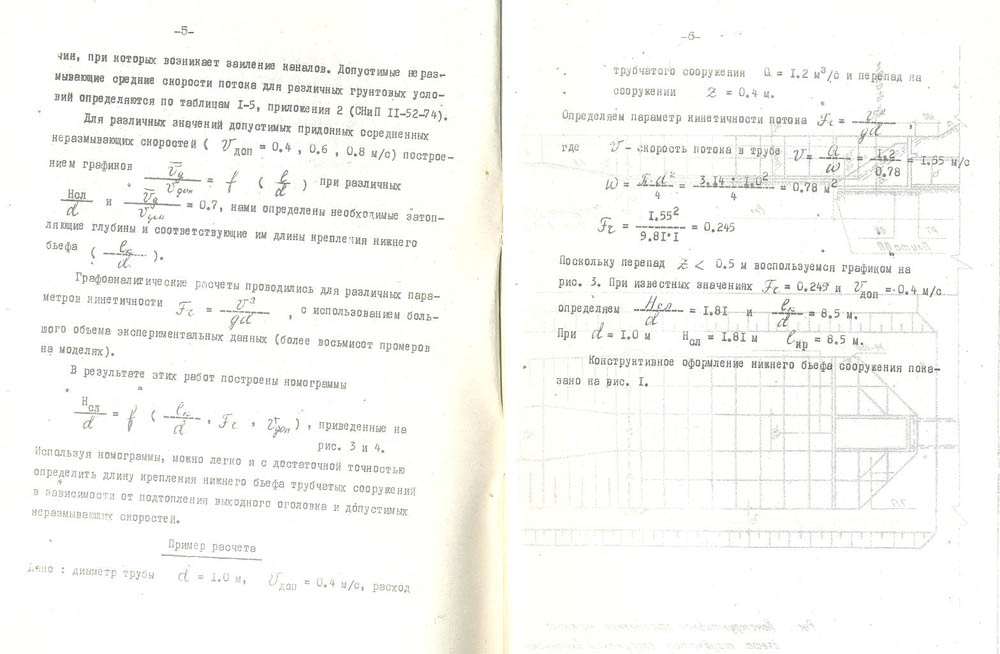 -5-
чин, при которых возникает заиление каналов. Допустимые нераз-
мывающие средние скорости потока для различных грунтовых усло-
вий определяются по таблицам I-5, приложения 2 (СНиП II-52-74).
Для различных значений допустимых придонных осредненных
неразмывающих скоростей ( V доп = 0.4 , 0.6 , 0.8 м/с) построе-
нием графиков V̅д / V̅доп = f ( l / d ) при различных
Hсл / d и V̅д / V̅доп = 0.7, нами определены необходимые затоп-
ляющие глубины и соответствующие им длины крепления нижнего
бьефа ( lк / d ).
Графоаналитические расчеты проводились для различных пара-
метров кинетичности Fr = V² / gd , с использованием боль-
шого объема экспериментальных данных (более восьмисот промеров
на моделях).
В результате этих работ построены номограммы
Hсл / d = f ( lк / d , Fr , Vдоп ) , приведенные на
рис. 3 и 4.
Используя номограммы, можно легко и с достаточной точностью
определить длину крепления нижнего бьефа трубчатых сооружений
в зависимости от подтопления выходного оголовка и допустимых
неразмывающих скоростей.
Пример расчета
Дано : диаметр трубы d = I.0 м, Vдоп = 0.4 м/с, расход
-6-
трубчатого сооружения Q = I.2 м³/с и перепад на
сооружении Z = 0.4 м.
Определяем параметр кинетичности потока Fr = V² / gd ,
где V - скорость потока в трубе V = Q / ω = I.2 / 0.78 = I.55 м/с
ω = π·d² / 4 = 3.I4 · I.0² / 4 = 0.78 м²
Fr = I.55² / 9.8I·I = 0.245
Поскольку перепад Z < 0.5 м воспользуемся графиком на
рис. 3. При известных значениях Fr = 0.245 и Vдоп = 0.4 м/с
определяем Hсл / d = I.8I и lк / d = 8.5 м.
При d = I.0 м Hсл = I.8I м lкр = 8.5 м.
Конструктивное оформление нижнего бьефа сооружения пока-
зано на рис. I.